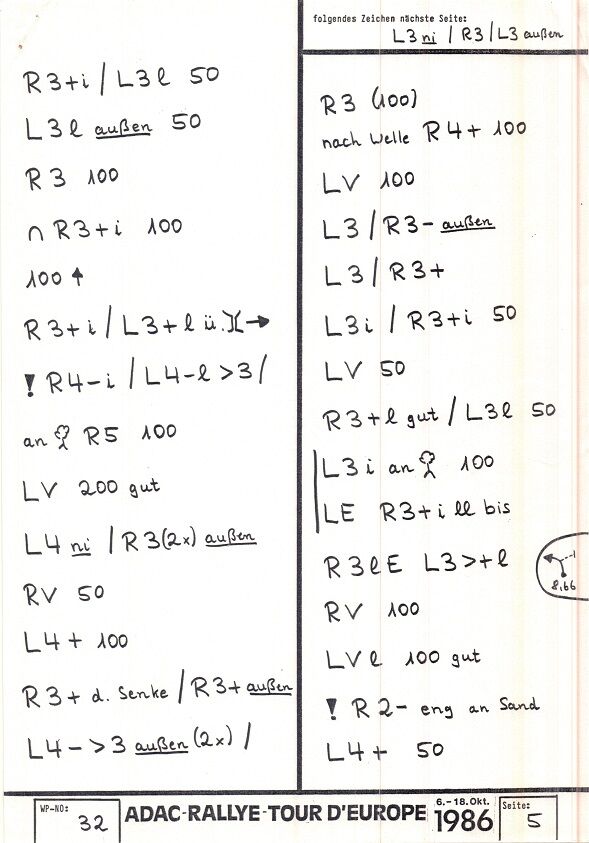 folgendes Zeichen nächste Seite:
L3 ni / R3 / L3 außen
R3+i / L3l 50
L3l außen 50
R3 100
∩ R3+i 100
100 ↑
R3+i / L3+l ü. )( →
! R4-i / L4-l >3 /
an R5 100
LV 200 gut
L4 ni / R3 (2x) außen
RV 50
L4+ 100
R3+ d. Senke / R3+ außen
L4- >3 außen (2x) /
R3 (100)
nach Welle R4+ 100
LV 100
L3 / R3- außen
L3 / R3+
L3i / R3+i 50
LV 50
R3+l gut / L3l 50
L3i an 100
LE R3+i ll bis
R3lE L3>+l
8,66
RV 100
LVl 100 gut
! R2- eng an Sand
L4+ 50
WP-NO: 32
ADAC-RALLYE-TOUR D'EUROPE
6.-18.Okt. 1986
Seite: 5